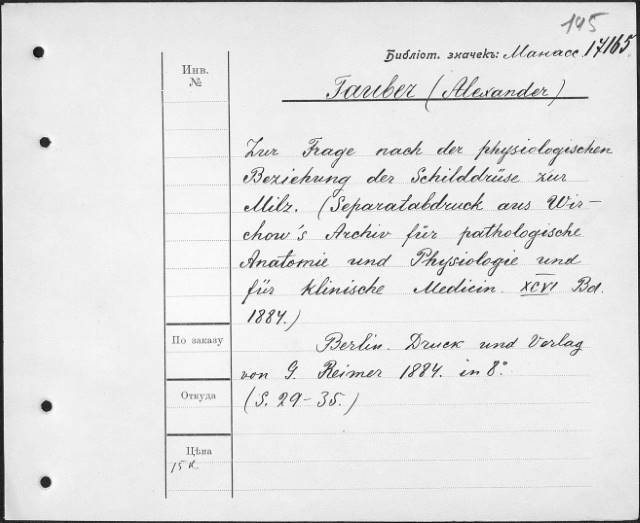 145
Библіот. значекъ: Манасс. 17165.
Инв.
№
Tauber (Alexander)
Zur Frage nach der physiologischen
Beziehung der Schilddrüse zur
Milz. (Separatabdruck aus Wir-
chow's Archiv für pathologische
Anatomie und Physiologie und
für klinische Medicin. XCVI Bd.
1884.)
По заказу
Berlin. Druck und Verlag
von G. Reimer 1884. in 8°.
Откуда
(S. 29-35.)
Цѣна
15 к.